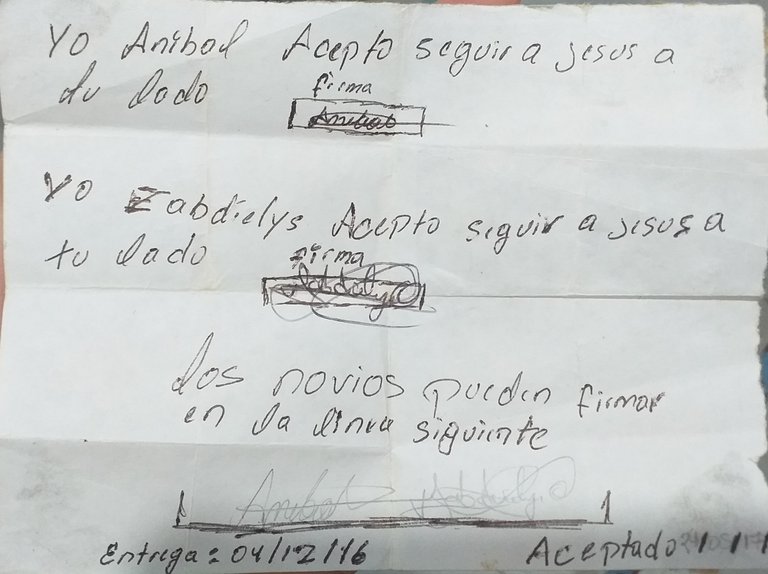 Yo Anibal Acepto seguir a jesus a
tu lado
firma
Anibal
Yo Zabdielys Acepto seguir a jesus a
tu lado
firma
Zabdielys
los novios pueden firmar
en la linea siguiente
Anibal Zabdielys
Entrega: 04/12/16 Aceptado